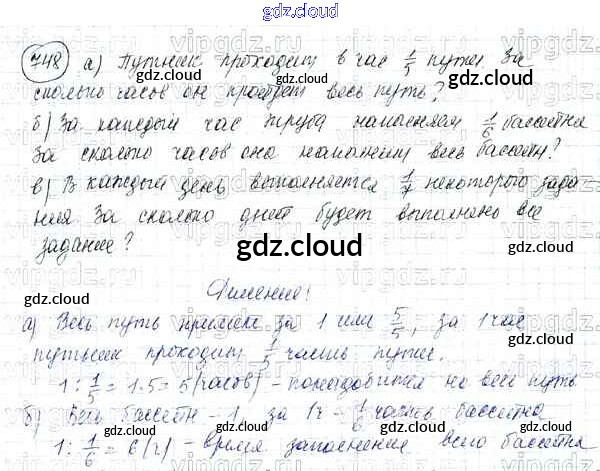 gdz.cloud
748 а) Путник проходит в час 1/5 пути. За
сколько часов он пройдет весь путь?
б) За каждый час труба наполняет 1/6 бассейна
За сколько часов она наполнит весь бассейн?
в) В каждый день выполняется 1/7 некоторого зада-
ния За сколько дней будет выполнено все
задание?
gdz.cloud
Решение!
а) Весь путь примем за 1 или 5/5, за 1 час
путник проходит 1/5 часть пути.
1 : 1/5 = 1·5 = 5 (часов) – понадобится на весь путь
б) Весь бассейн – 1, за 1ч – 1/6 часть бассейна
1 : 1/6 = 6 (ч) – время заполнения всего бассейна